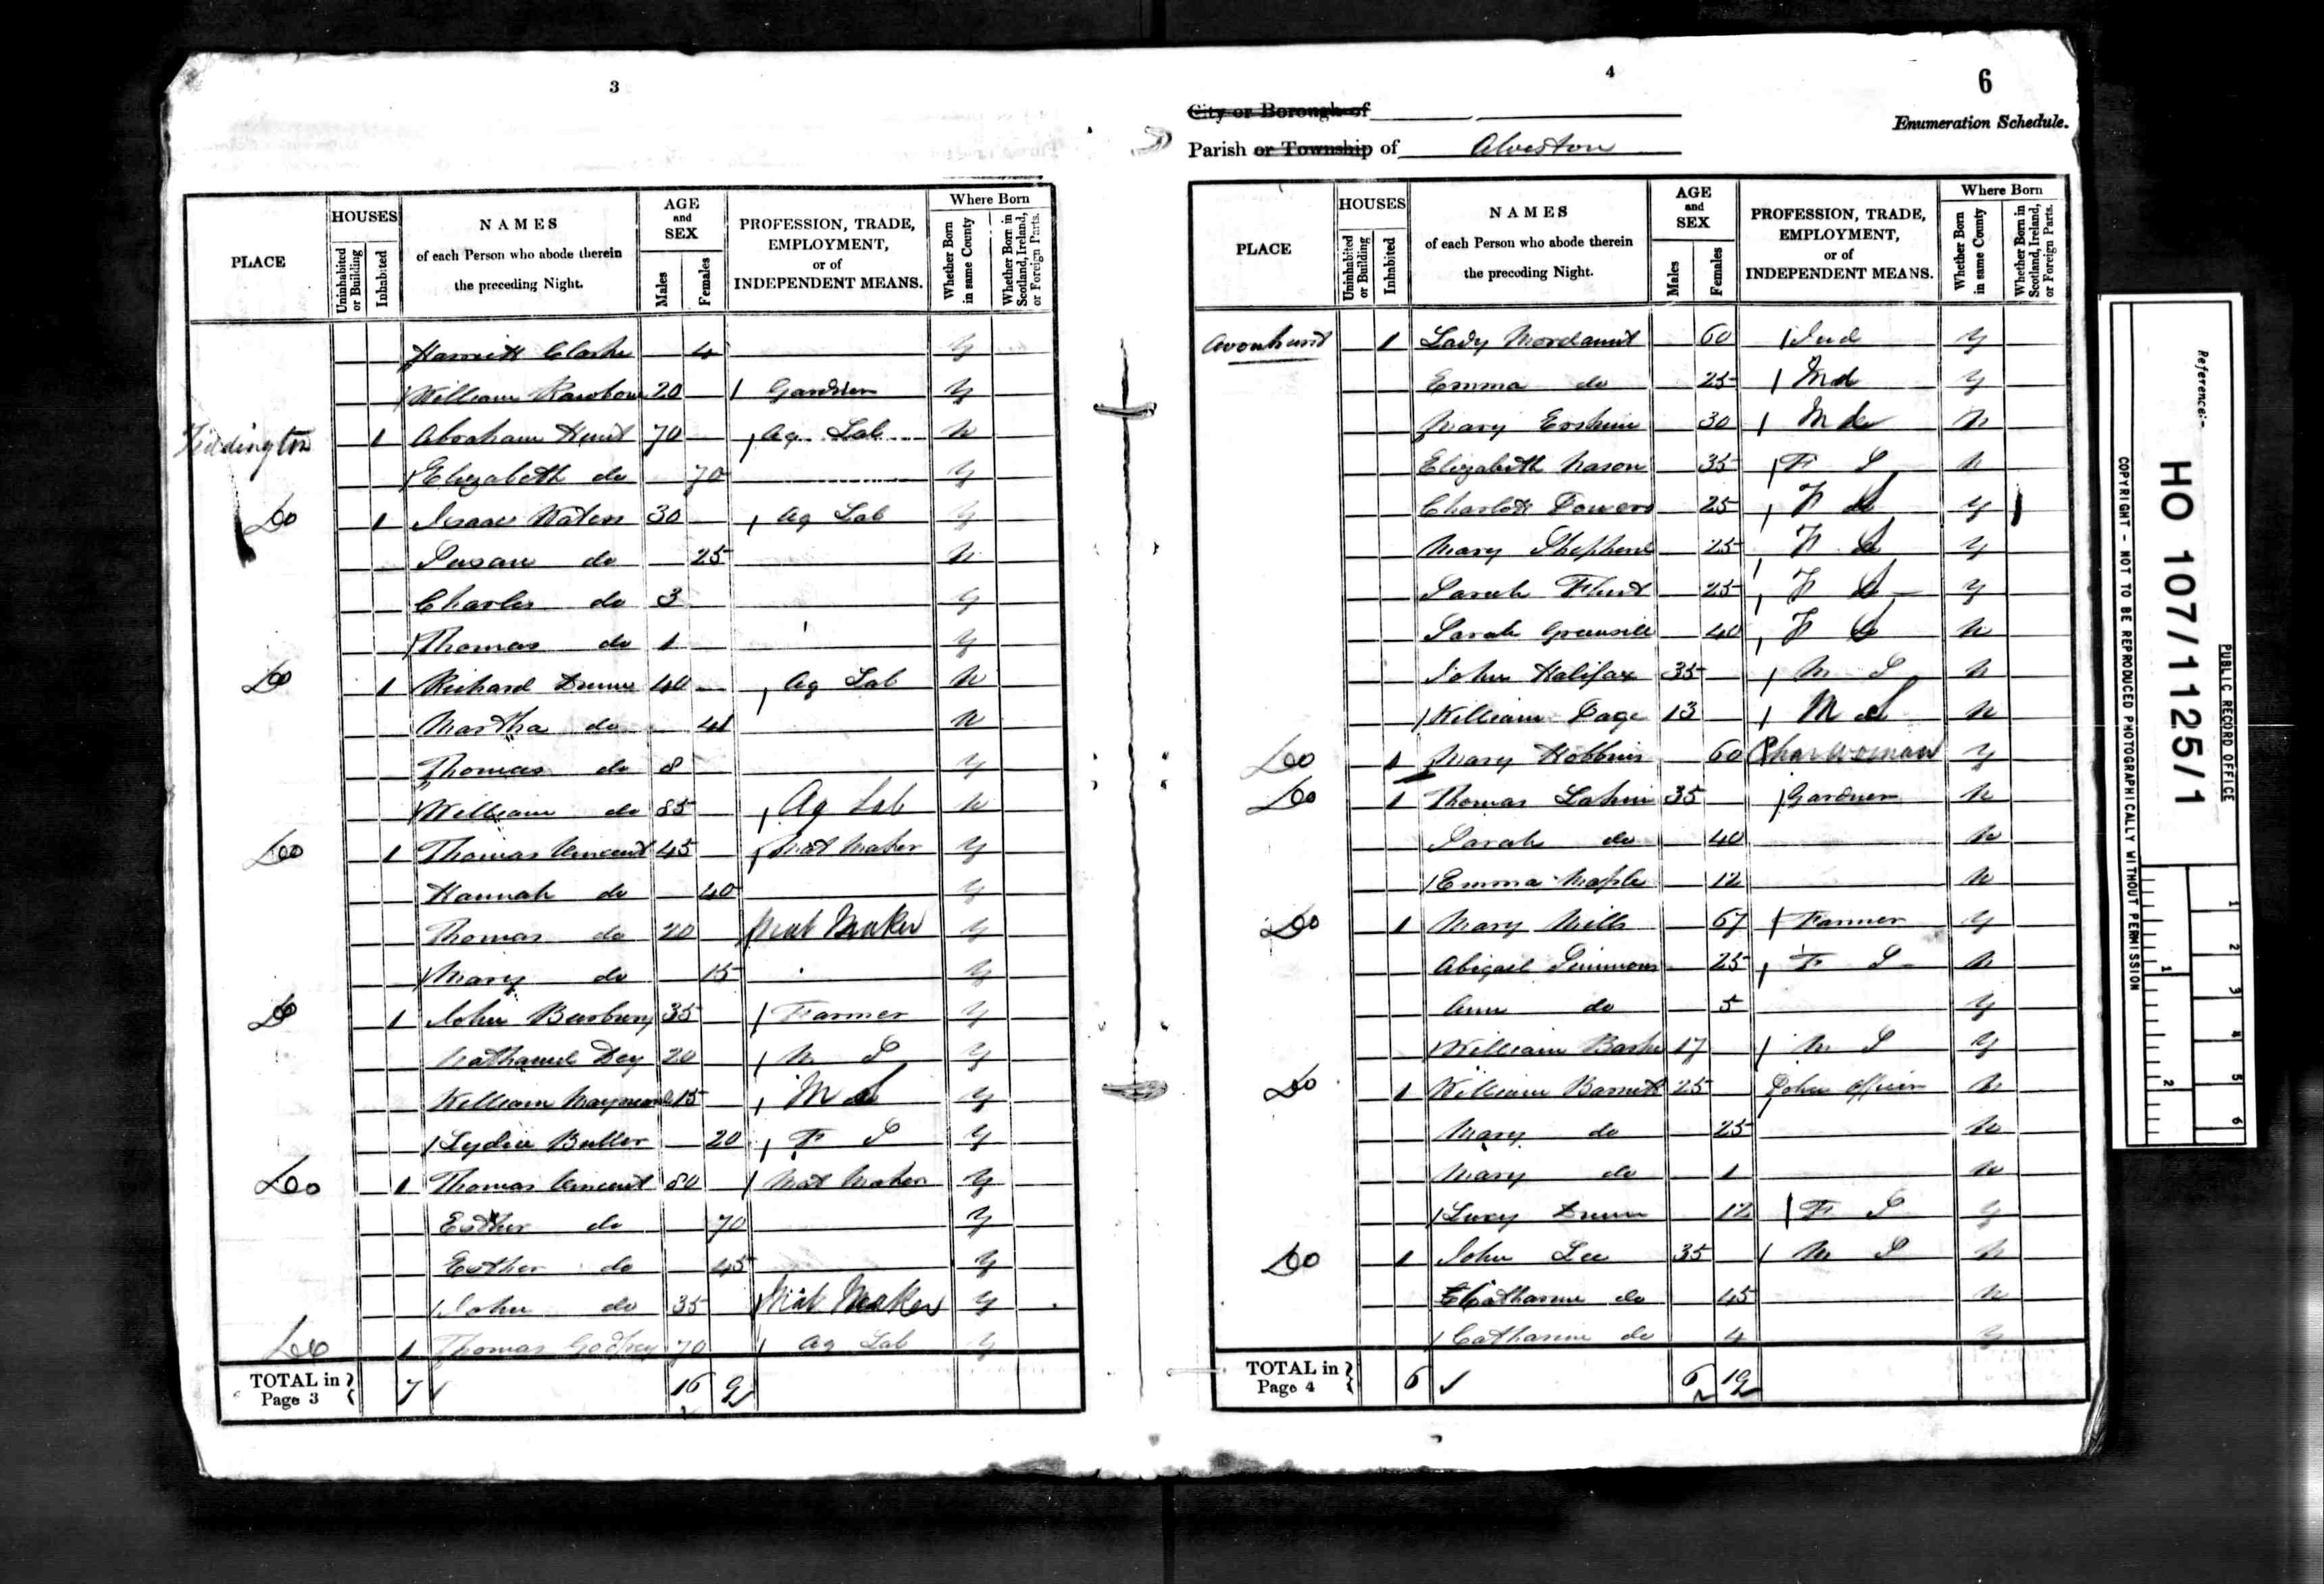 3
PLACE
HOUSES
Uninhabited or Building
Inhabited
NAMES
of each Person who abode therein
the preceding Night.
AGE and SEX
Males
Females
PROFESSION, TRADE,
EMPLOYMENT,
or of
INDEPENDENT MEANS.
Where Born
Whether Born in same County
Whether Born in Scotland, Ireland, or Foreign Parts.
Harriett Clarke 4 Y
William 20 Gardner Y
Tiddington 1 Abraham Hunt 70 Ag Lab N
Elizabeth do 70 Y
Do 1 Isaac Waters 30 Ag Lab Y
Susan do 25 N
Charles do 3 Y
Thomas do 1 Y
Do 1 Richard Dunn 40 Ag Lab N
Martha do 41 N
Thomas do 8 Y
William do 85 Ag Lab N
Do 1 Thomas Vincent 45 Mat Maker Y
Hannah do 40 Y
Thomas do 20 Mat Maker Y
Mary do 15 Y
Do 1 John Burbury 35 Farmer Y
Nathaniel Dey 20 M S Y
William 15 M S Y
Lydia Butler 20 F S Y
Do 1 Thomas Vincent 80 Mat Maker Y
Esther do 70 Y
Esther do 45 Y
John do 35 Mat Maker Y
Do 1 Thomas Godfrey 70 Ag Lab Y
TOTAL in Page 3 7 16 9
4
6
City or Borough of
Enumeration Schedule.
Parish or Township of Alveston
PLACE
HOUSES
Uninhabited or Building
Inhabited
NAMES
of each Person who abode therein
the preceding Night.
AGE and SEX
Males
Females
PROFESSION, TRADE,
EMPLOYMENT,
or of
INDEPENDENT MEANS.
Where Born
Whether Born in same County
Whether Born in Scotland, Ireland, or Foreign Parts.
Avonhurst 1 Lady Mordaunt 60 Ind Y
Emma do 25 Ind Y
Mary Erskine 30 Ind N
Elizabeth Nason 35 F S N
Charlott Powers 25 F S Y
Mary Shepherd 25 F S Y
Sarah Flint 25 F S Y
Sarah Greensill 40 F S N
John Halifax 35 M S N
William Page 13 M S N
Do 1 Mary Hobbins 60 Char Woman Y
Do 1 Thomas 35 Gardner N
Sarah do 40 N
Emma Maple 12 N
Do 1 Mary Mills 67 Farmer Y
Abigael Simmons 25 F S N
Ann do 5 Y
William 17 M S Y
Do 1 William Barnett 25 Police Officer N
Mary do 25 N
Mary do 1 N
Lucy Dunn 12 F S Y
Do 1 John Lee 35 M S N
Catharine do 45 N
Catharine do 4 Y
TOTAL in Page 4 6 6 19
Reference:-
HO 107/1125/1
PUBLIC RECORD OFFICE
COPYRIGHT - NOT TO BE REPRODUCED PHOTOGRAPHICALLY WITHOUT PERMISSION
1
2
1
2
3
4
5
6